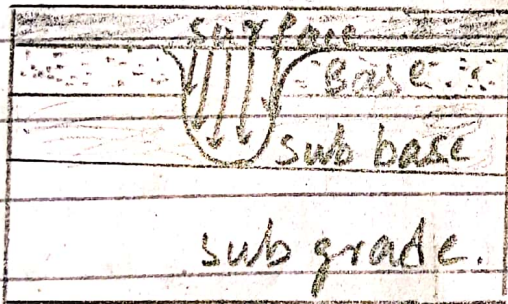 surface
Base
sub base
sub grade.